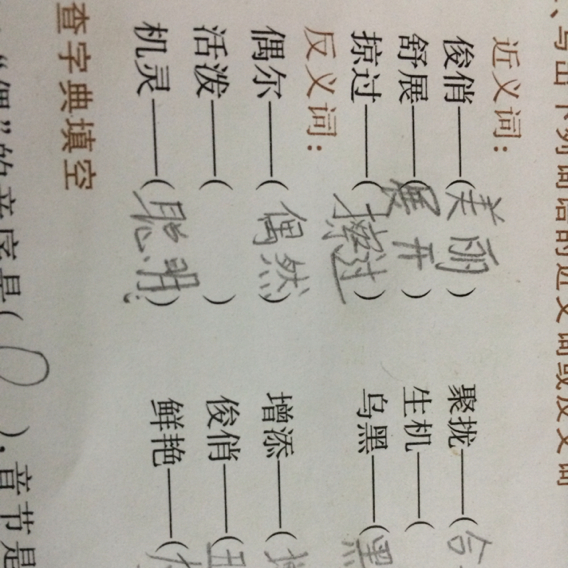 、写出下列词语的近义词或反义词
近义词：
俊俏——（美丽） 聚拢——（合
舒展——（展开） 生机——（
掠过——（擦过） 乌黑——（黑
反义词：
偶尔——（偶然） 增添——（
活泼——（ ） 俊俏——（丑
机灵——（聪明） 鲜艳——（
查字典填空
“偶”的音序是（O），音节是